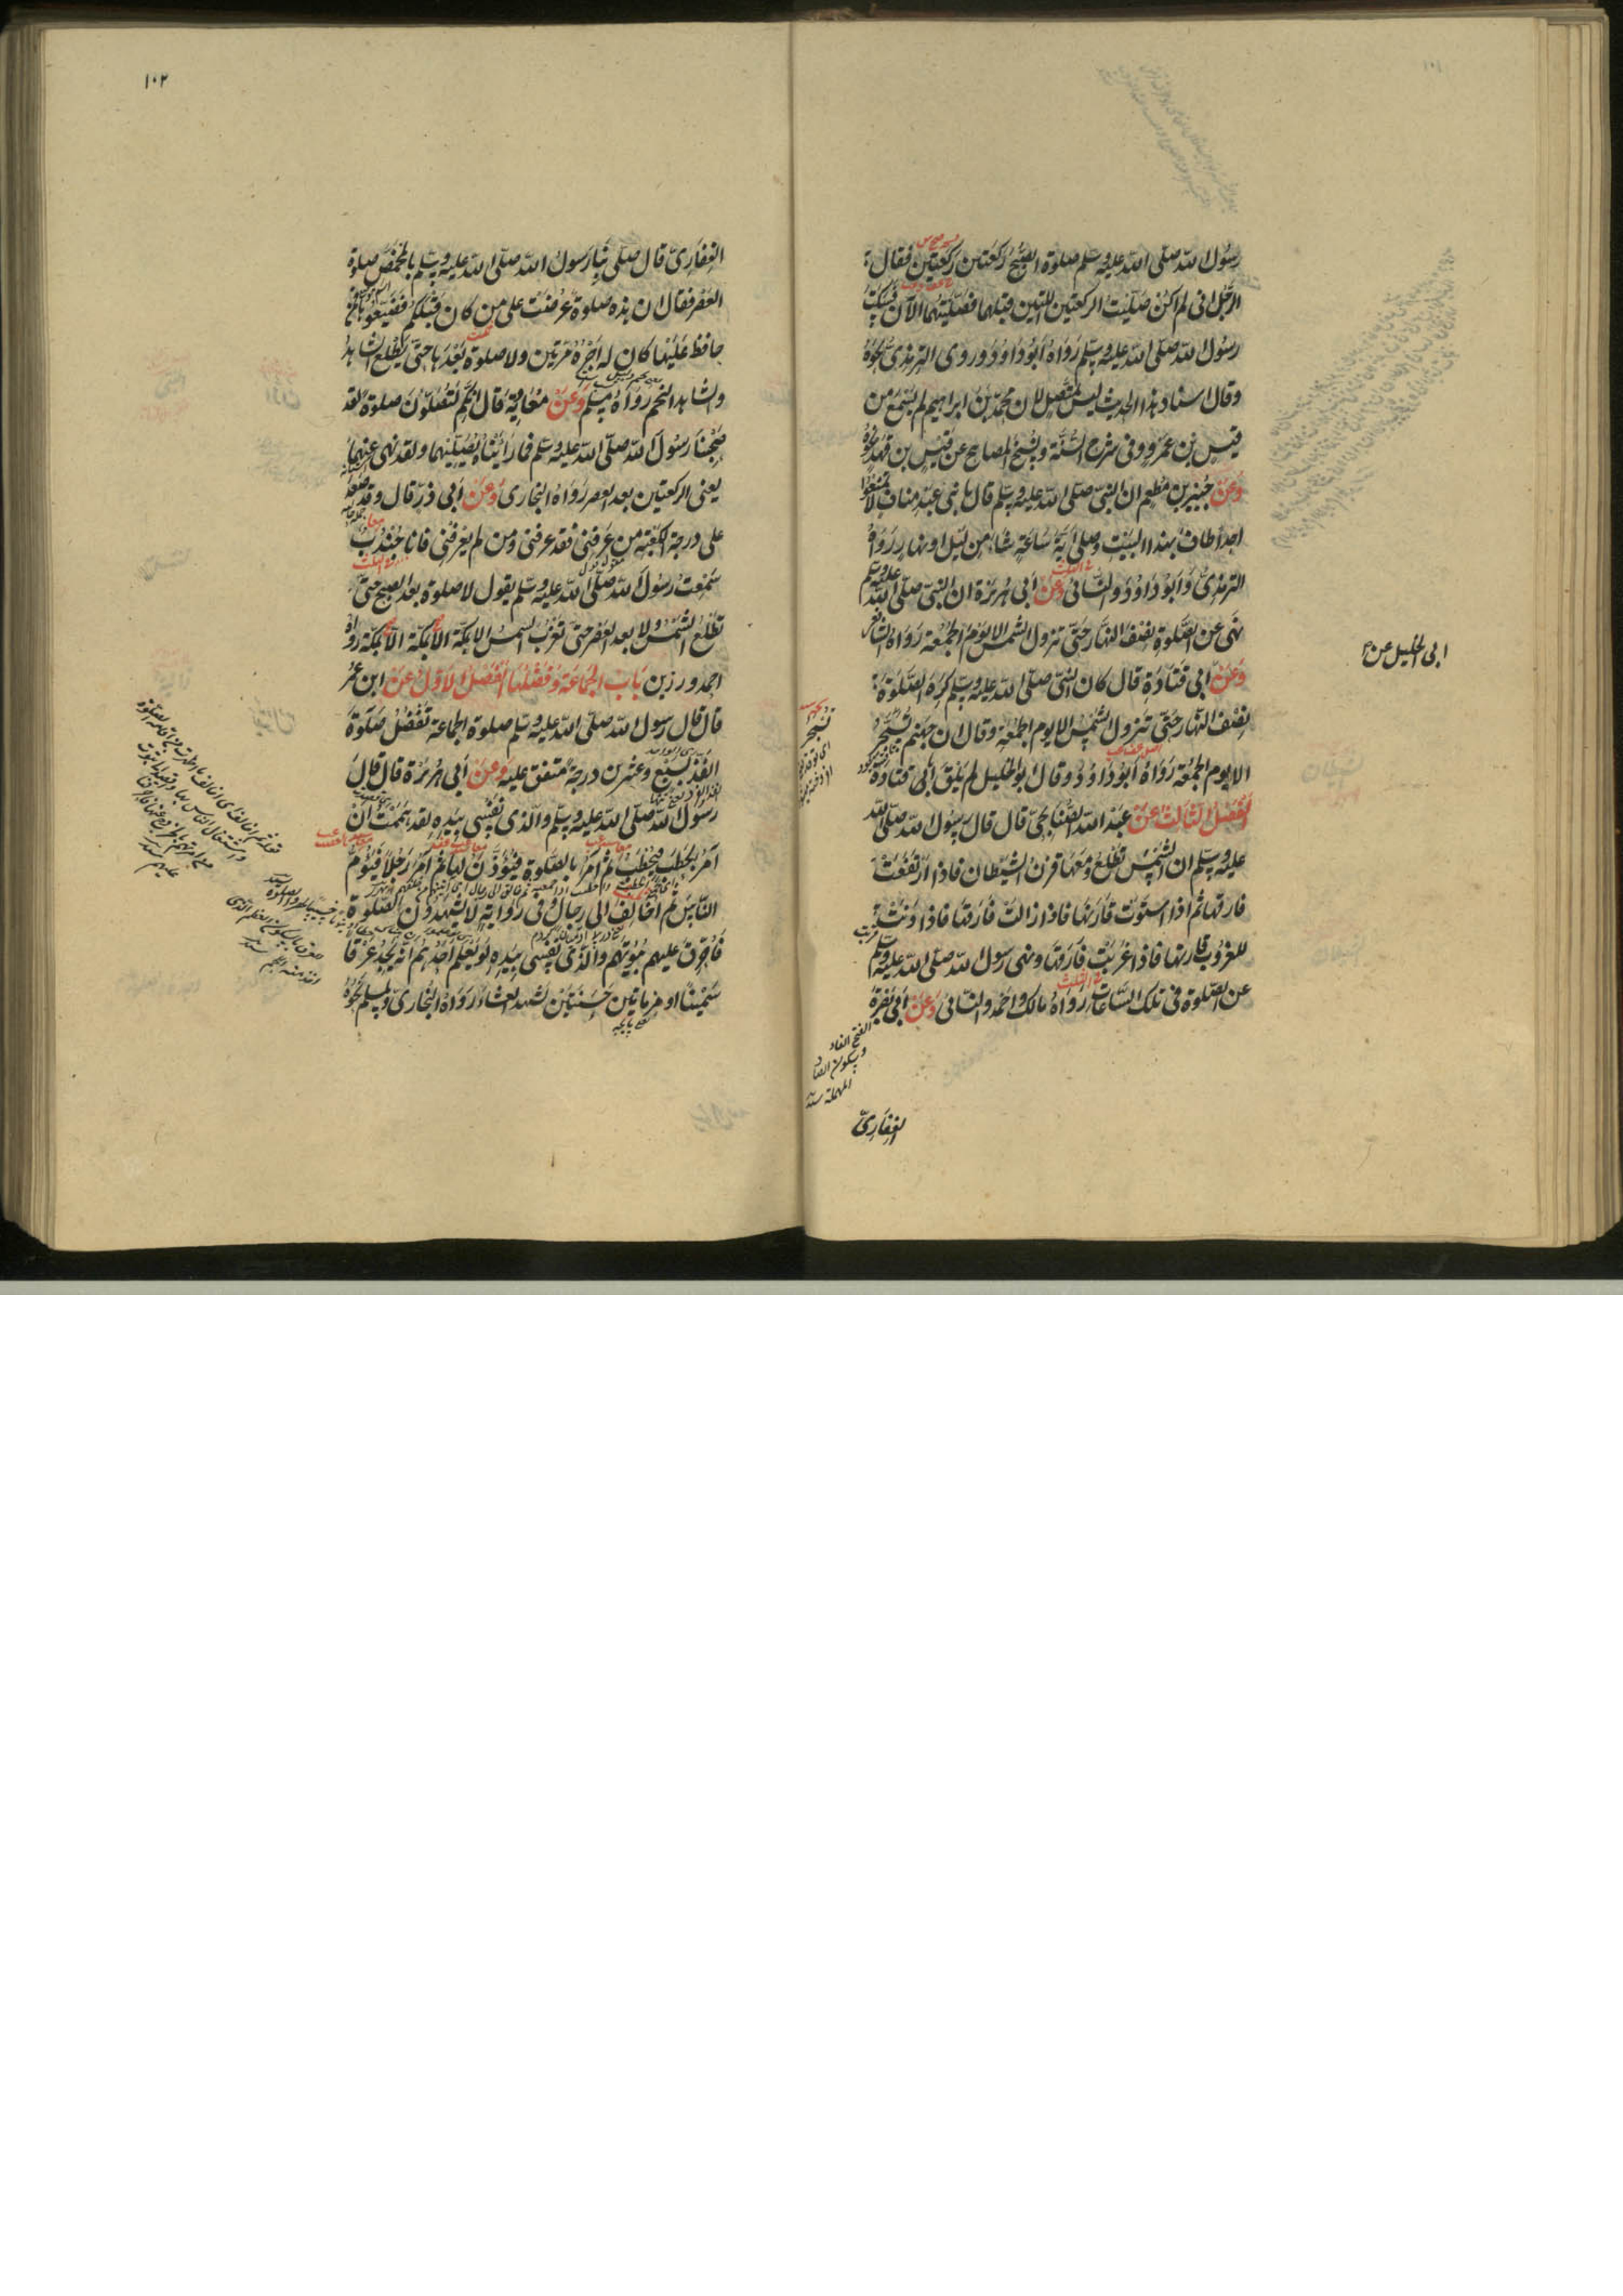 ١٠١
رسول الله صلى الله عليه وسلم صلوة الصبح ركعتين ركعتين فقال
الرجل انى لم اكن صليت الركعتين اللتين قبلهما فصليتهما الآن فسكت
رسول الله صلى الله عليه وسلم رواه ابوداود وروى الترمذى نحوه
وقال اسناد هذا الحديث ليس بمتصل لان محمد بن ابراهيم لم يسمع من
قيس بن عمرو وفى شرح السنة ونسخ المصابيح عن قيس بن قهد نحوه
وعن جبير بن مطعم ان النبى صلى الله عليه وسلم قال يا بنى عبد مناف لا تمنعوا
احدا طاف بهذا البيت وصلى اية ساعة شاء من ليل او نهار رواه
الترمذى وابوداود والنسائى وعن ابى هريرة ان النبى صلى الله عليه وسلم
نهى عن الصلوة نصف النهار حتى تزول الشمس الا يوم الجمعة رواه الشافعى
وعن ابى قتادة قال كان النبى صلى الله عليه وسلم كره الصلوة
نصف النهار حتى تزول الشمس الا يوم الجمعة وقال ان جهنم تسجر
الا يوم الجمعة رواه ابوداود وقال ابو الخليل لم يلق ابى قتادة
الفصل الثالث عن عبد الله الصنابحى قال قال رسول الله صلى الله
عليه وسلم ان الشمس تطلع ومعها قرن الشيطان فاذا ارتفعت
فارقها ثم اذا استوت قارنها فاذا زالت فارقها فاذا دنت
للغروب قارنها فاذا غربت فارقها ونهى رسول الله صلى الله عليه وسلم
عن الصلوة فى تلك الساعات رواه مالك واحمد والنسائى وعن ابى بصرة
ابى الخليل عن
تسجر
الفتح الفاء
وسكون الصاد
المهملة
الغفارى
١٠٢
الغفارى قال صلى بنا رسول الله صلى الله عليه وسلم بالمخمص صلوة
العصر فقال ان هذه صلوة عرضت على من كان قبلكم فضيعوها فمن
حافظ عليها كان له اجره مرتين ولا صلوة بعدها حتى يطلع الشاهد
والشاهد النجم رواه مسلم وعن معاوية قال انكم لتصلون صلوة لقد
صحبنا رسول الله صلى الله عليه وسلم فما رأيناه يصليهما ولقد نهى عنهما
يعنى الركعتين بعد العصر رواه البخارى وعن ابى ذر قال وقد صعد
على درجة الكعبة من عرفنى فقد عرفنى ومن لم يعرفنى فانا جندب
سمعت رسول الله صلى الله عليه وسلم يقول لا صلوة بعد الصبح حتى
تطلع الشمس ولا بعد العصر حتى تغرب الشمس الا بمكة الا بمكة الا بمكة رواه
احمد ورزين باب الجماعة وفضلها الفصل الاول عن ابن عمر
قال قال رسول الله صلى الله عليه وسلم صلوة الجماعة تفضل صلوة
الفذ بسبع وعشرين درجة متفق عليه وعن ابى هريرة قال قال
رسول الله صلى الله عليه وسلم والذى نفسى بيده لقد هممت ان
آمر بحطب فيحطب ثم آمر بالصلوة فيؤذن لها ثم آمر رجلا فيؤم
الناس ثم اخالف الى رجال وفى رواية لا يشهدون الصلوة
فاحرق عليهم بيوتهم والذى نفسى بيده لو يعلم احدهم انه يجد عرقا
سمينا او مرماتين حسنتين لشهد العشاء رواه البخارى ولمسلم نحوه